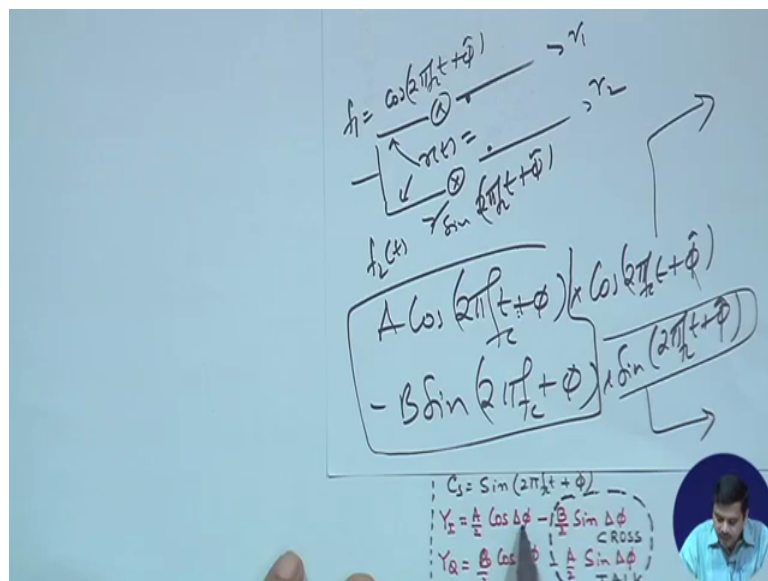 f₁ = cos(2πf_ct + φ̂)
→ r₁
r(t) =
→ r₂
sin(2πf_ct + φ̂)
f₂(t)
A Cos(2πf_ct + φ) × Cos(2πf_ct + φ̂)
- B Sin(2πf_ct + φ) × Sin(2πf_ct + φ̂)
C_s = Sin(2πf_ct + φ)
Y_I = A/2 Cos Δφ - B/2 Sin Δφ
CROSS
Y_Q = B/2 Cos φ A/2 Sin Δφ
TALK